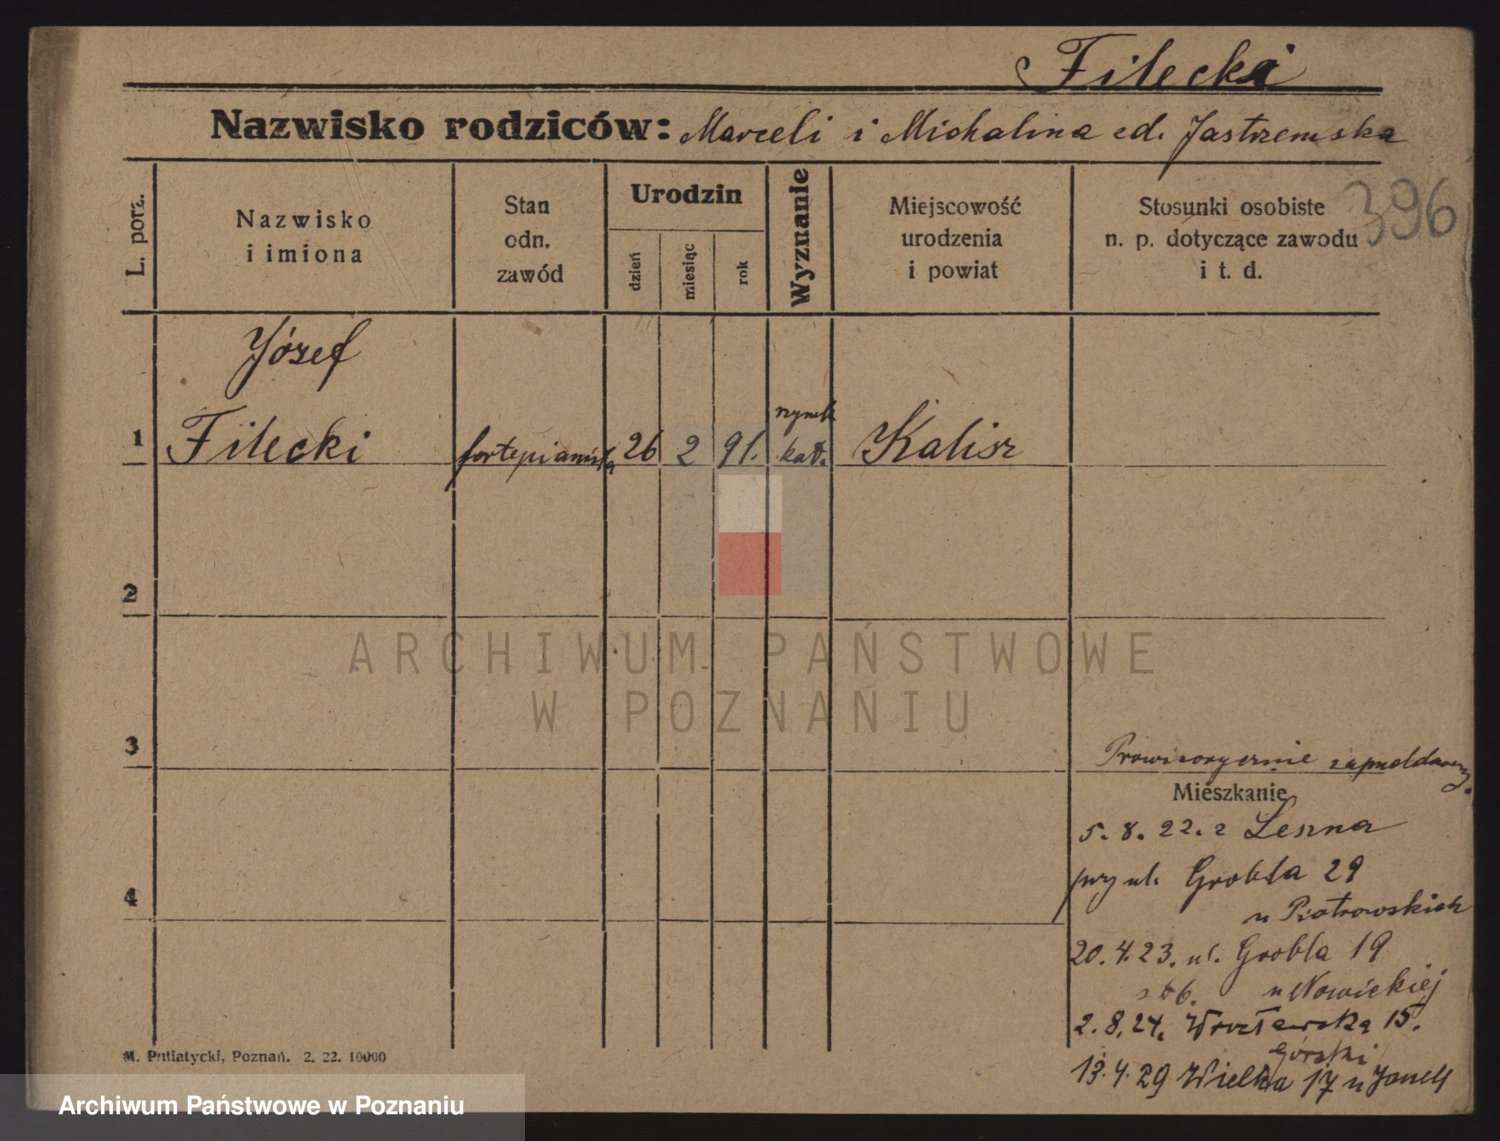 Filecki
Nazwisko rodziców: Marceli i Michalina zd. Jastrzemska
396
L. porz.
Nazwisko
i imiona
Stan
odn.
zawód
Urodzin
dzień
miesiąc
rok
Wyznanie
Miejscowość
urodzenia
i powiat
Stosunki osobiste
n. p. dotyczące zawodu
i t. d.
Józef
1 Filecki fortepianista 26 2 91. rzymsk. kat. Kalisz
2
ARCHIWUM PAŃSTWOWE
W POZNANIU
3
Prowizorycznie zapmeldowany.
Mieszkanie
5. 8. 22. z Leszna
4
przy ul. Grobla 29
u Piotrowskich
20. 4. 23. ul. Grobla 19
u Nowickiej
2. 8. 24. Wrocławska 15.
Górski
13. 4. 29 Wielka 17 u
M. Putiatycki, Poznań. 2. 22. 10000
Archiwum Państwowe w Poznaniu